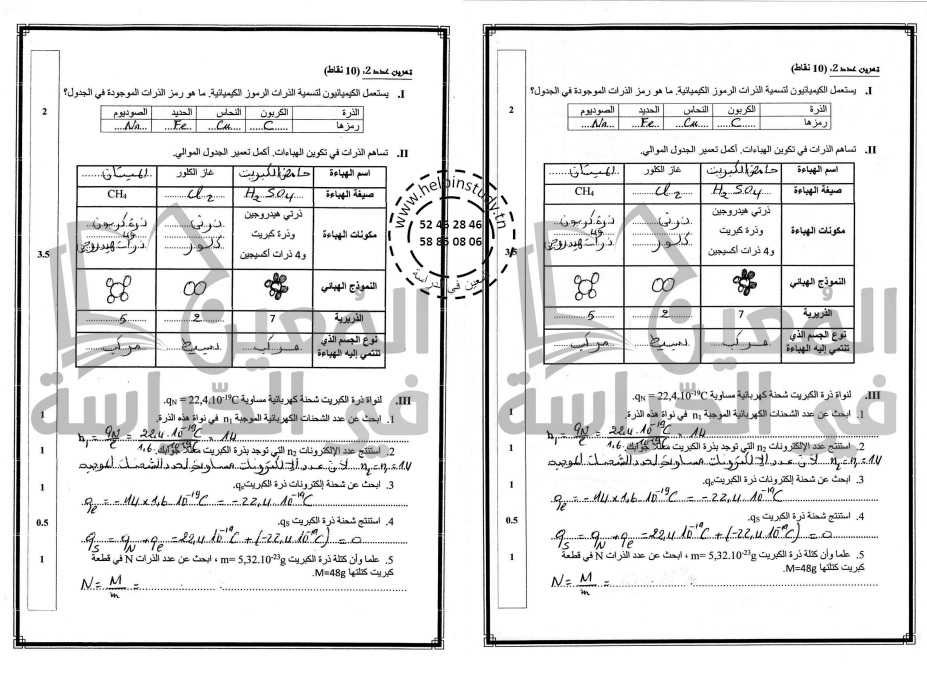 تمرين عدد 2: (10 نقاط)
I. يستعمل الكيميائيون لتسمية الذرات الرموز الكيميائية. ما هو رمز الذرات الموجودة في الجدول؟
2
الذرة الكربون النحاس الحديد الصوديوم
رمزها C Cu Fe Na
II. تساهم الذرات في تكوين الهباءات. أكمل تعمير الجدول الموالي.
3.5
اسم الهباءة حامض الكبريت غاز الكلور الميتان
صيغة الهباءة H2SO4 Cl2 CH4
مكونات الهباءة
ذرتي هيدروجين
وذرة كبريت
و4 ذرات أكسيجين
ذرتي
كلور
ذرة كربون
و4
ذرات هيدروجين
النموذج الهبائي
الذريرية 7 2 5
نوع الجسم الذي
تنتمي إليه الهباءة
مركب بسيط مركب
III. لنواة ذرة الكبريت شحنة كهربائية مساوية qN = 22,4.10-19C.
1. ابحث عن عدد الشحنات الكهربائية الموجبة n1 في نواة هذه الذرة.
1
n1 = qN/e = 22,4.10-19C / 1,6.10-19C = 14
2. استنتج عدد الإلكترونات n2 التي توجد بذرة الكبريت معللا جوابك.
1
لأن عدد الإلكترونات مساو لعدد الشحنات الموجبة
3. ابحث عن شحنة إلكترونات ذرة الكبريت qe.
1
qe = -14 x 1,6.10-19C = -22,4.10-19C
4. استنتج شحنة ذرة الكبريت qS.
0.5
qS = qN + qe = 22,4.10-19C + (-22,4.10-19C) = 0
5. علما وأن كتلة ذرة الكبريت m= 5,32.10-23g ، ابحث عن عدد الذرات N في قطعة
كبريت كتلتها M=48g.
1
N = M/m =
www.helpinstudy.tn
52 46 28 46
58 86 08 06
المعين في الدراسة
المعين
في الدراسة
تمرين عدد 2: (10 نقاط)
I. يستعمل الكيميائيون لتسمية الذرات الرموز الكيميائية. ما هو رمز الذرات الموجودة في الجدول؟
2
الذرة الكربون النحاس الحديد الصوديوم
رمزها C Cu Fe Na
II. تساهم الذرات في تكوين الهباءات. أكمل تعمير الجدول الموالي.
3.5
اسم الهباءة حامض الكبريت غاز الكلور الميتان
صيغة الهباءة H2SO4 Cl2 CH4
مكونات الهباءة
ذرتي هيدروجين
وذرة كبريت
و4 ذرات أكسيجين
ذرتي
كلور
ذرة كربون
و4
ذرات هيدروجين
النموذج الهبائي
الذريرية 7 2 5
نوع الجسم الذي
تنتمي إليه الهباءة
مركب بسيط مركب
III. لنواة ذرة الكبريت شحنة كهربائية مساوية qN = 22,4.10-19C.
1. ابحث عن عدد الشحنات الكهربائية الموجبة n1 في نواة هذه الذرة.
1
n1 = qN/e = 22,4.10-19C / 1,6.10-19C = 14
2. استنتج عدد الإلكترونات n2 التي توجد بذرة الكبريت معللا جوابك.
1
لأن عدد الإلكترونات مساو لعدد الشحنات الموجبة
3. ابحث عن شحنة إلكترونات ذرة الكبريت qe.
1
qe = -14 x 1,6.10-19C = -22,4.10-19C
4. استنتج شحنة ذرة الكبريت qS.
0.5
qS = qN + qe = 22,4.10-19C + (-22,4.10-19C) = 0
5. علما وأن كتلة ذرة الكبريت m= 5,32.10-23g ، ابحث عن عدد الذرات N في قطعة
كبريت كتلتها M=48g.
1
N = M/m =
المعين
في الدراسة